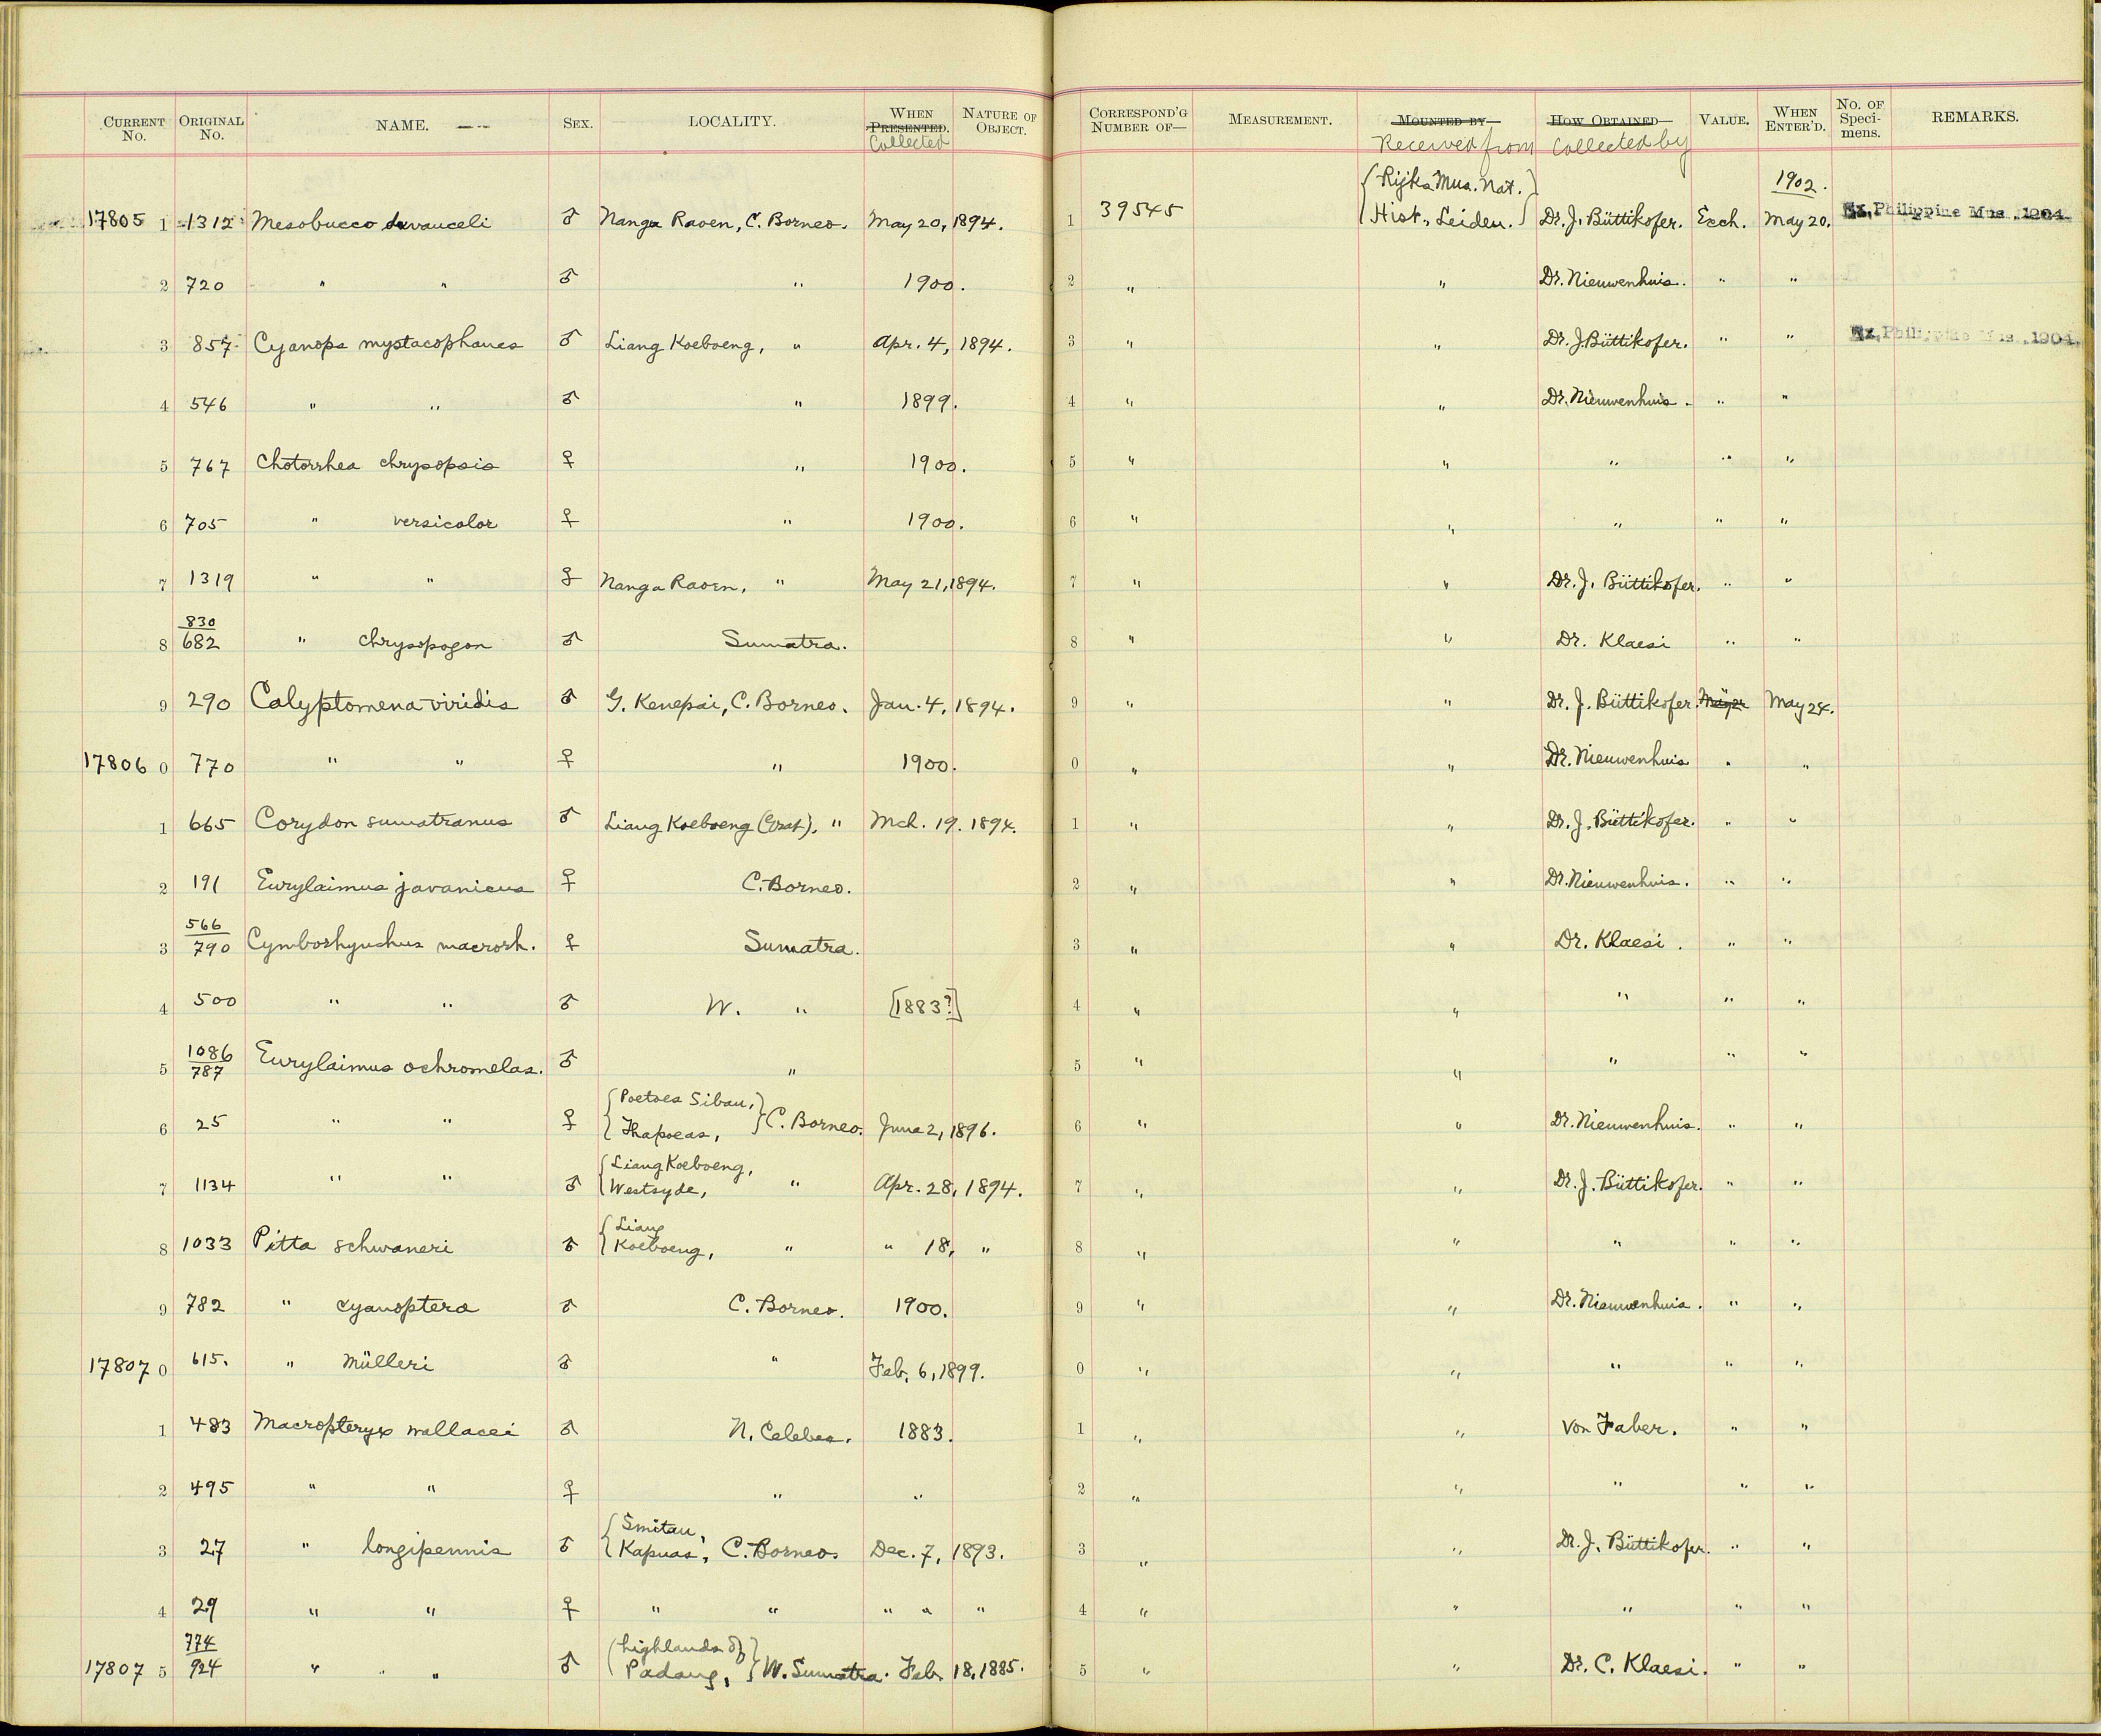 CURRENT No. ORIGINAL No. NAME. SEX. LOCALITY. WHEN PRESENTED. Collected NATURE OF OBJECT. CORRESPOND'G NUMBER OF— MEASUREMENT. MOUNTED BY— Received from HOW OBTAINED— Collected by VALUE. WHEN ENTER'D. No. OF Specimens. REMARKS.
17805 1 1312 Mesobucco duvauceli ♂ Nanga Raoen, C. Borneo. May 20, 1894. 1 39545 {Rijks Mus. Nat. Hist., Leiden.} Dr. J. Büttikofer. Exch. 1902. May 20. Ex. Philippine Mus., 1904.
2 720 " " ♂ " 1900. 2 " " Dr. Nieuwenhuis. " "
3 857 Cyanops mystacophanes ♂ Liang Koeboeng, " Apr. 4, 1894. 3 " " Dr. J. Büttikofer. " " Ex. Philippine Mus., 1904.
4 546 " " ♂ " 1899. 4 " " Dr. Nieuwenhuis. " "
5 767 Chotorrhea chrysopsis ♀ " 1900. 5 " " " " "
6 705 " versicolor ♀ " 1900. 6 " " " " "
7 1319 " " ♀ Nanga Raoen, " May 21, 1894. 7 " " Dr. J. Büttikofer. " "
8 830/682 " chrysopogon ♂ Sumatra. 8 " " Dr. Klaesi " "
9 290 Calyptomena viridis ♂ G. Kenepai, C. Borneo. Jan. 4, 1894. 9 " " Dr. J. Büttikofer. May 24.
17806 0 770 " " ♀ " 1900. 0 " " Dr. Nieuwenhuis " "
1 665 Corydon sumatranus ♂ Liang Koeboeng, " Mch. 19. 1894. 1 " " Dr. J. Büttikofer. " "
2 191 Eurylaimus javanicus ♀ C. Borneo. 2 " " Dr. Nieuwenhuis. " "
3 566/790 Cymborhynchus macrorh. ♀ Sumatra. 3 " " Dr. Klaesi. " "
4 500 " " ♂ W. " [1883?] 4 " " " " "
5 1086/787 Eurylaimus ochromelas. ♂ " 5 " " " " "
6 25 " " ♀ {Poetoes Sibau, Khapoeas,} C. Borneo. June 2, 1896. 6 " " Dr. Nieuwenhuis. " "
7 1134 " " ♂ {Liang Koeboeng, Westsyde, " Apr. 28, 1894. 7 " " Dr. J. Büttikofer. " "
8 1033 Pitta schwaneri ♂ {Liang Koeboeng, " " 18, " 8 " " " " "
9 782 " cyanoptera ♂ C. Borneo. 1900. 9 " " Dr. Nieuwenhuis. " "
17807 0 615. " Mülleri ♂ " Feb. 6, 1899. 0 " " " " "
1 483 Macropteryx wallacei ♂ N. Celebes. 1883. 1 " " Von Faber. " "
2 495 " " ♀ " " 2 " " " " "
3 27 " longipennis ♂ {Smitau, Kapuas, C. Borneo. Dec. 7, 1893. 3 " " Dr. J. Büttikofer. " "
4 29 " " ♀ " " " " " 4 " " " " "
17807 5 774/924 " " ♂ {highlands of Padang,} W. Sumatra. Feb. 18, 1885. 5 " " Dr. C. Klaesi. " "